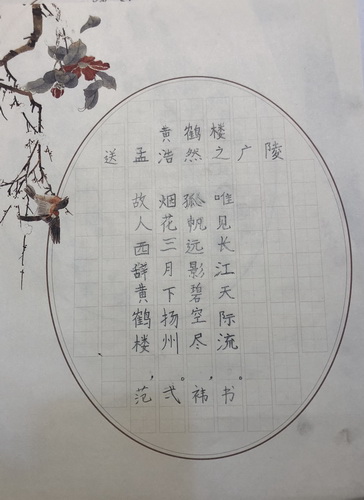 黄鹤楼
送孟浩然之广陵
故人西辞黄鹤楼，
烟花三月下扬州。
孤帆远影碧空尽，
唯见长江天际流。
范弍祎书